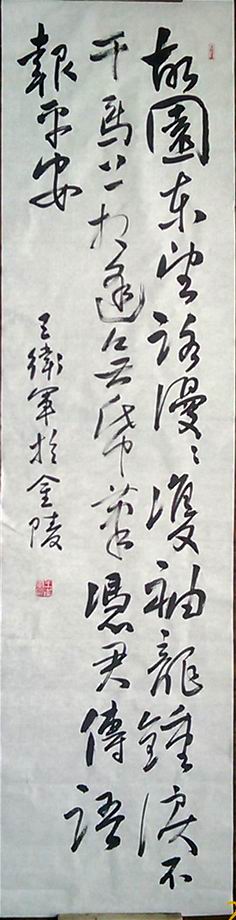 故園東望路漫〻雙袖龍鍾淚不
干馬上相逢無帋筆憑君傳語
報平安
王衛軍於金陵